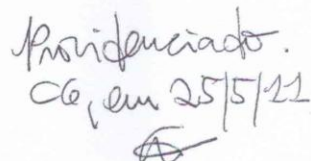 Providenciado.
CG, em 25/5/11